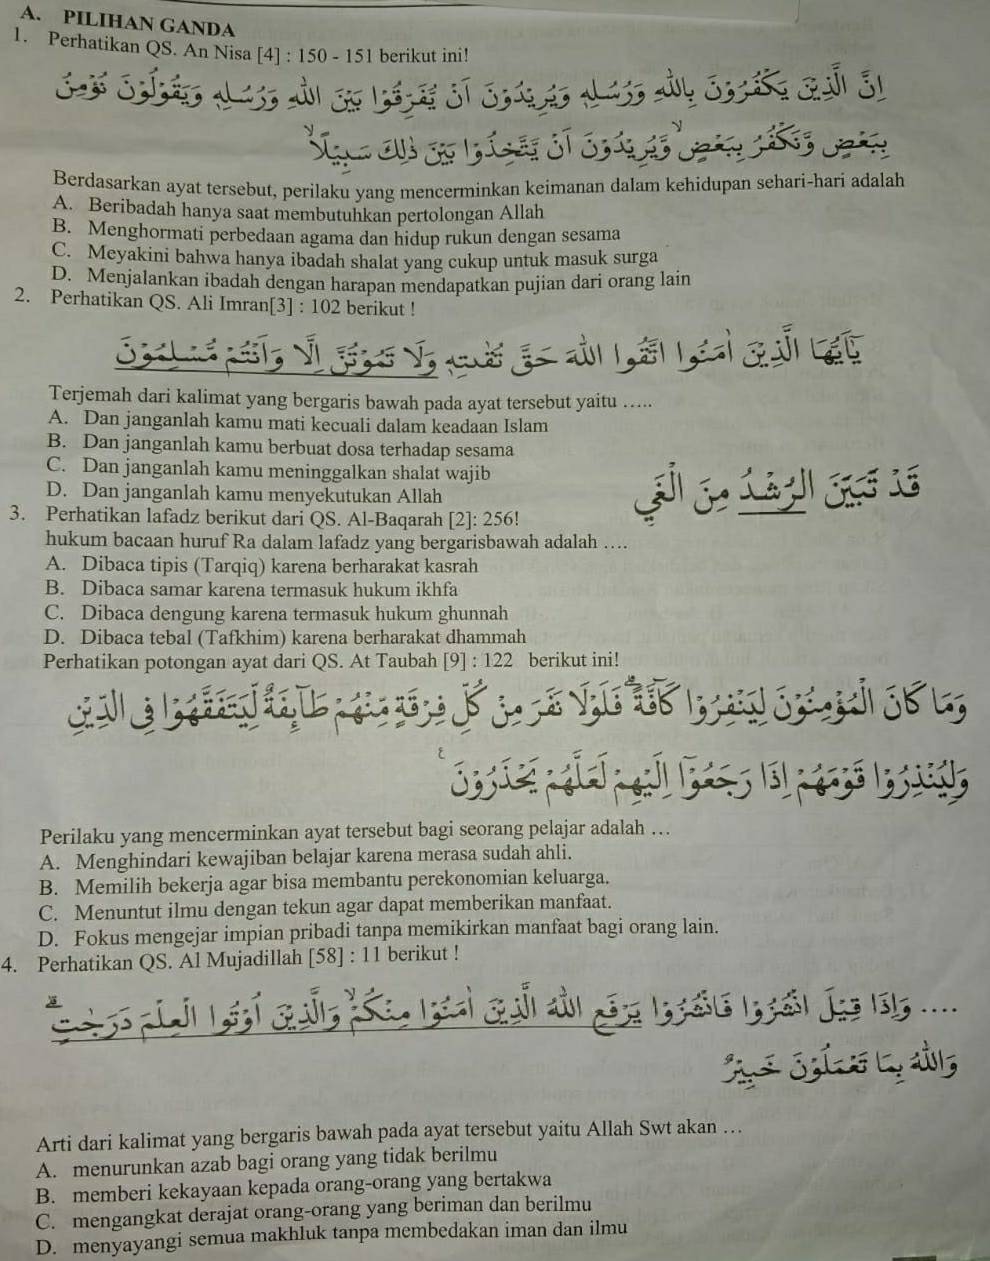 A. PILIHAN GANDA
1. Perhatikan QS. An Nisa [4] : 150 - 151 berikut ini!
اِنَّ الَّذِيْنَ يَكْفُرُوْنَ بِاللّٰهِ وَرُسُلِهٖ وَيُرِيْدُوْنَ اَنْ يُّفَرِّقُوْا بَيْنَ اللّٰهِ وَرُسُلِهٖ وَيَقُوْلُوْنَ نُؤْمِنُ
بِبَعْضٍ وَّنَكْفُرُ بِبَعْضٍۙ وَّيُرِيْدُوْنَ اَنْ يَّتَّخِذُوْا بَيْنَ ذٰلِكَ سَبِيْلًاۙ
Berdasarkan ayat tersebut, perilaku yang mencerminkan keimanan dalam kehidupan sehari-hari adalah
A. Beribadah hanya saat membutuhkan pertolongan Allah
B. Menghormati perbedaan agama dan hidup rukun dengan sesama
C. Meyakini bahwa hanya ibadah shalat yang cukup untuk masuk surga
D. Menjalankan ibadah dengan harapan mendapatkan pujian dari orang lain
2. Perhatikan QS. Ali Imran[3] : 102 berikut !
يٰٓاَيُّهَا الَّذِيْنَ اٰمَنُوا اتَّقُوا اللّٰهَ حَقَّ تُقٰىتِهٖ وَلَا تَمُوْتُنَّ اِلَّا وَاَنْتُمْ مُّسْلِمُوْنَ
Terjemah dari kalimat yang bergaris bawah pada ayat tersebut yaitu …..
A. Dan janganlah kamu mati kecuali dalam keadaan Islam
B. Dan janganlah kamu berbuat dosa terhadap sesama
C. Dan janganlah kamu meninggalkan shalat wajib
D. Dan janganlah kamu menyekutukan Allah
قَدْ تَّبَيَّنَ الرُّشْدُ مِنَ الْغَيِّ
3. Perhatikan lafadz berikut dari QS. Al-Baqarah [2]: 256!
hukum bacaan huruf Ra dalam lafadz yang bergarisbawah adalah ….
A. Dibaca tipis (Tarqiq) karena berharakat kasrah
B. Dibaca samar karena termasuk hukum ikhfa
C. Dibaca dengung karena termasuk hukum ghunnah
D. Dibaca tebal (Tafkhim) karena berharakat dhammah
Perhatikan potongan ayat dari QS. At Taubah [9] : 122 berikut ini!
وَمَا كَانَ الْمُؤْمِنُوْنَ لِيَنْفِرُوْا كَاۤفَّةًۗ فَلَوْلَا نَفَرَ مِنْ كُلِّ فِرْقَةٍ مِّنْهُمْ طَاۤىِٕفَةٌ لِّيَتَفَقَّهُوْا فِى الدِّيْنِ
وَلِيُنْذِرُوْا قَوْمَهُمْ اِذَا رَجَعُوْٓا اِلَيْهِمْ لَعَلَّهُمْ يَحْذَرُوْنَ ࣖ
Perilaku yang mencerminkan ayat tersebut bagi seorang pelajar adalah …
A. Menghindari kewajiban belajar karena merasa sudah ahli.
B. Memilih bekerja agar bisa membantu perekonomian keluarga.
C. Menuntut ilmu dengan tekun agar dapat memberikan manfaat.
D. Fokus mengejar impian pribadi tanpa memikirkan manfaat bagi orang lain.
4. Perhatikan QS. Al Mujadillah [58] : 11 berikut !
.... وَاِذَا قِيْلَ انْشُزُوْا فَانْشُزُوْا يَرْفَعِ اللّٰهُ الَّذِيْنَ اٰمَنُوْا مِنْكُمْۙ وَالَّذِيْنَ اُوْتُوا الْعِلْمَ دَرَجٰتٍۗ
وَاللّٰهُ بِمَا تَعْمَلُوْنَ خَبِيْرٌ
Arti dari kalimat yang bergaris bawah pada ayat tersebut yaitu Allah Swt akan …
A. menurunkan azab bagi orang yang tidak berilmu
B. memberi kekayaan kepada orang-orang yang bertakwa
C. mengangkat derajat orang-orang yang beriman dan berilmu
D. menyayangi semua makhluk tanpa membedakan iman dan ilmu